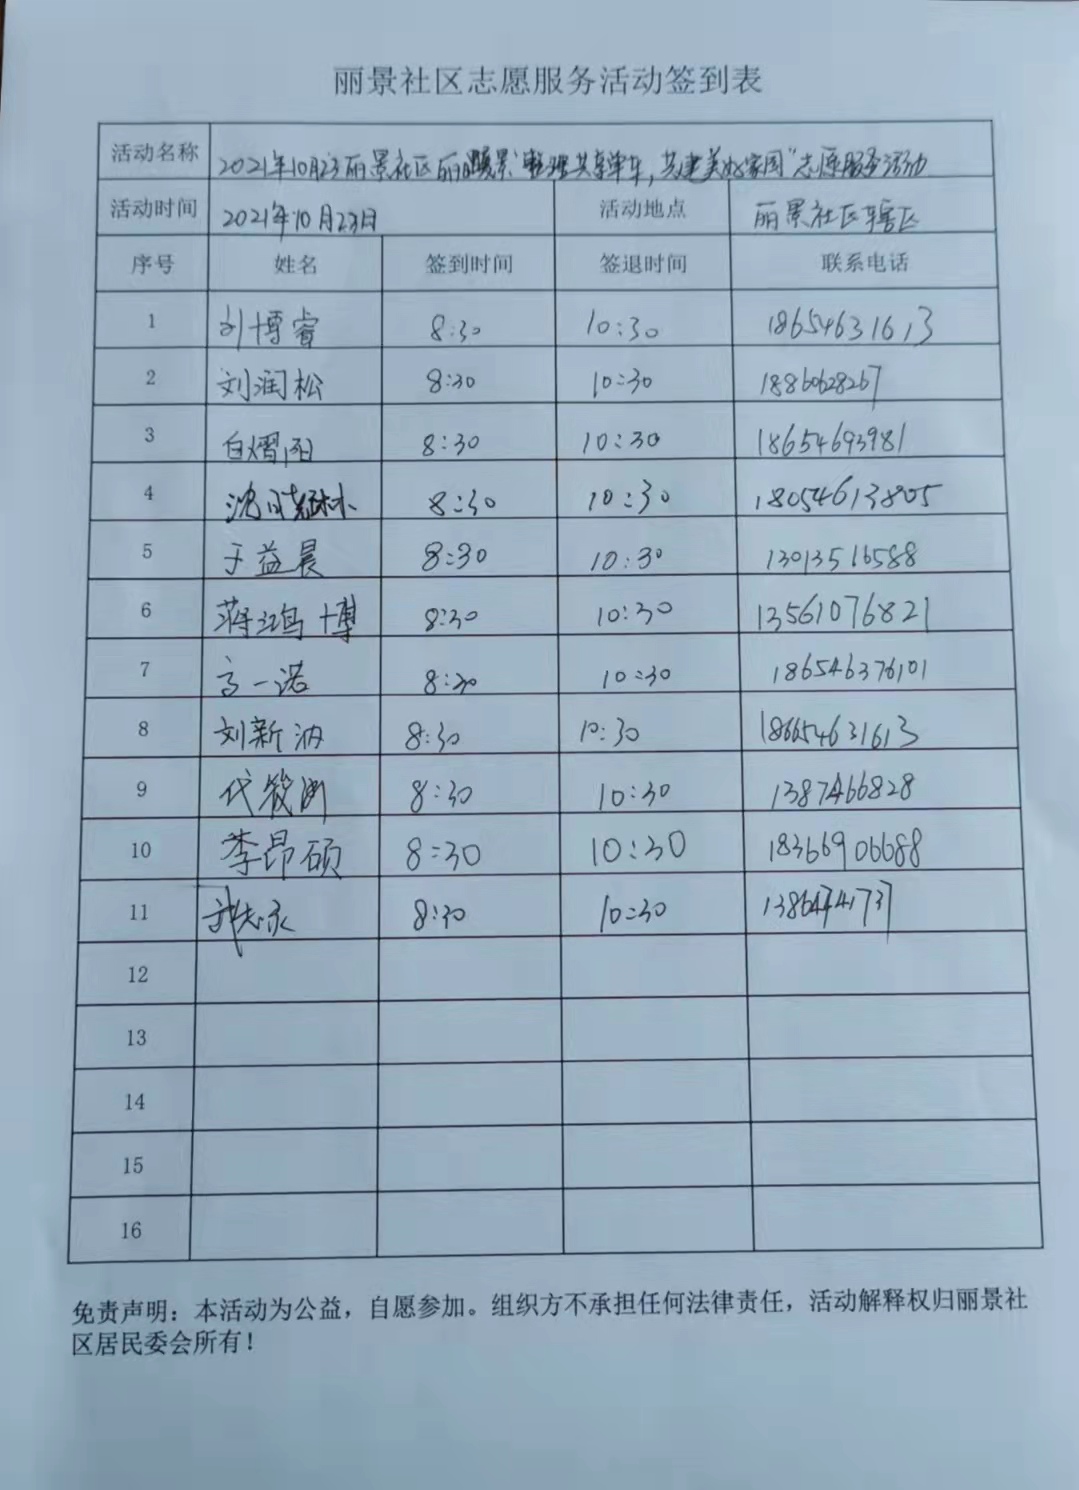 丽景社区志愿服务活动签到表
活动名称 2021年10月23丽景社区 丽日暖景"整理共享单车,共建美好家园"志愿服务活动
活动时间 2021年10月23日 活动地点 丽景社区辖区
序号 姓名 签到时间 签退时间 联系电话
1 刘博睿 8:30 10:30 18654631613
2 刘润松 8:30 10:30 18860628267
3 白熠 8:30 10:30 18654693981
4 8:30 10:30 18054613805
5 于益晨 8:30 10:30 13013516588
6 蒋鸿博 8:30 10:30 13561076821
7 高一诺 8:30 10:30 186546376101
8 刘新汭 8:30 10:30 18654631613
9 代筱渊 8:30 10:30 1387466828
10 李昂硕 8:30 10:30 18366906688
11 8:30 10:30 13864741737
12
13
14
15
16
免责声明：本活动为公益，自愿参加。组织方不承担任何法律责任，活动解释权归丽景社
区居民委会所有！